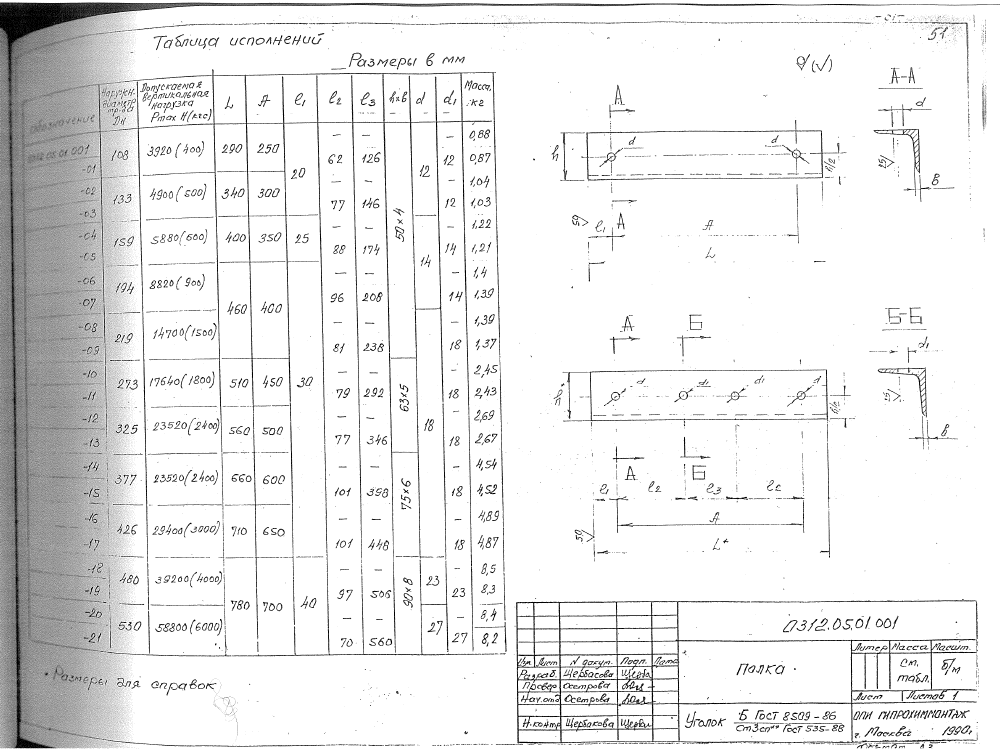 51
Таблица исполнений
Размеры в мм
Обозначение Наружн. диаметр тр-да Дн Допускаемая вертикальная нагрузка Pmax Н(кгс) L A ℓ1 ℓ2 ℓ3 h×в d d1 Масса, кг
П312.05.01.001 108 3920(400) 290 250 20 — — 50×4 12 — 0,88
-01 62 126 12 0,87
-02 133 4900(500) 340 300 — — — 1,04
-03 77 146 12 1,03
-04 159 5880(600) 400 350 25 — — 14 — 1,22
-05 88 174 14 1,21
-06 194 8820(900) 460 400 30 — — — 1,4
-07 96 208 14 1,39
-08 219 14700(1500) — — 18 — 1,39
-09 81 238 18 1,37
-10 273 17640(1800) 510 450 — — 63×5 — 2,45
-11 79 292 18 2,43
-12 325 23520(2400) 560 500 — — — 2,69
-13 77 346 18 2,67
-14 377 23520(2400) 660 600 — — 75×6 — 4,54
-15 101 398 18 4,52
-16 426 29400(3000) 710 650 — — — 4,89
-17 101 446 18 4,87
-18 480 39200(4000) 780 700 40 — — 90×8 23 — 8,5
-19 97 506 23 8,3
-20 530 58800(6000) — — 27 — 8,4
-21 70 560 27 8,2
* Размеры для справок
(√)
А А-А
d
h d d h/2 25 в
50 ℓ1 А А
L
А Б Б-Б
d1
h* d d1 d1 d h/2 25 в
А Б
ℓ1 ℓ2 ℓ3 ℓ2
А
50 L*
П312.05.01.001
Изм Лист N докум. Подп. Дата
Разраб. Щербакова
Провер Осетрова
Нач.отд Осетрова
Н.контр Щербакова
Полка
Литер Масса Масшт.
см. табл. б/м
Лист Листов 1
Уголок Б ГОСТ 8509-86
Ст3сп ГОСТ 535-88
ОПИ ГИПРОХИММОНТАЖ
г. Москва 1990г.